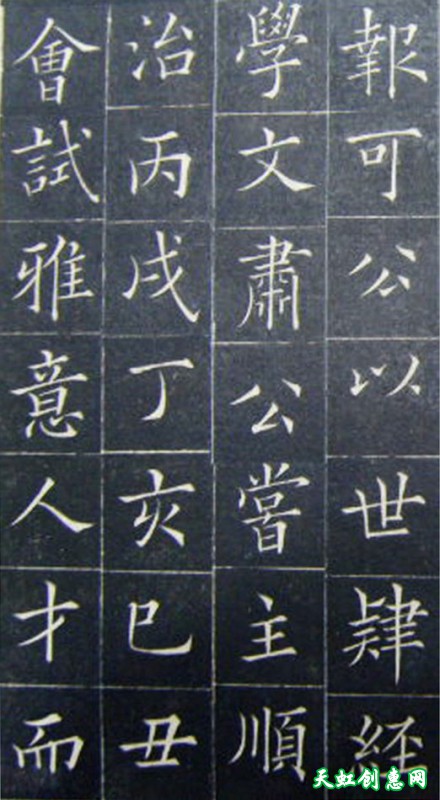 報可公以世肄經
學文肅公嘗主順
治丙戌丁亥巳丑
會試雅意人才而
天虹创惠网